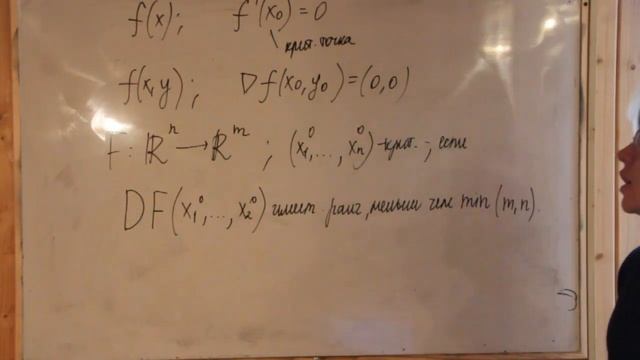 f(x); f'(x₀) = 0
крит. точка
f(x,y); ∇f(x₀,y₀) = (0,0)
F: ℝⁿ → ℝᵐ; (x₁⁰,...,xₙ⁰) - крит., если
DF(x₁⁰,...,x₂⁰) имеет ранг, меньший чем min(m,n).